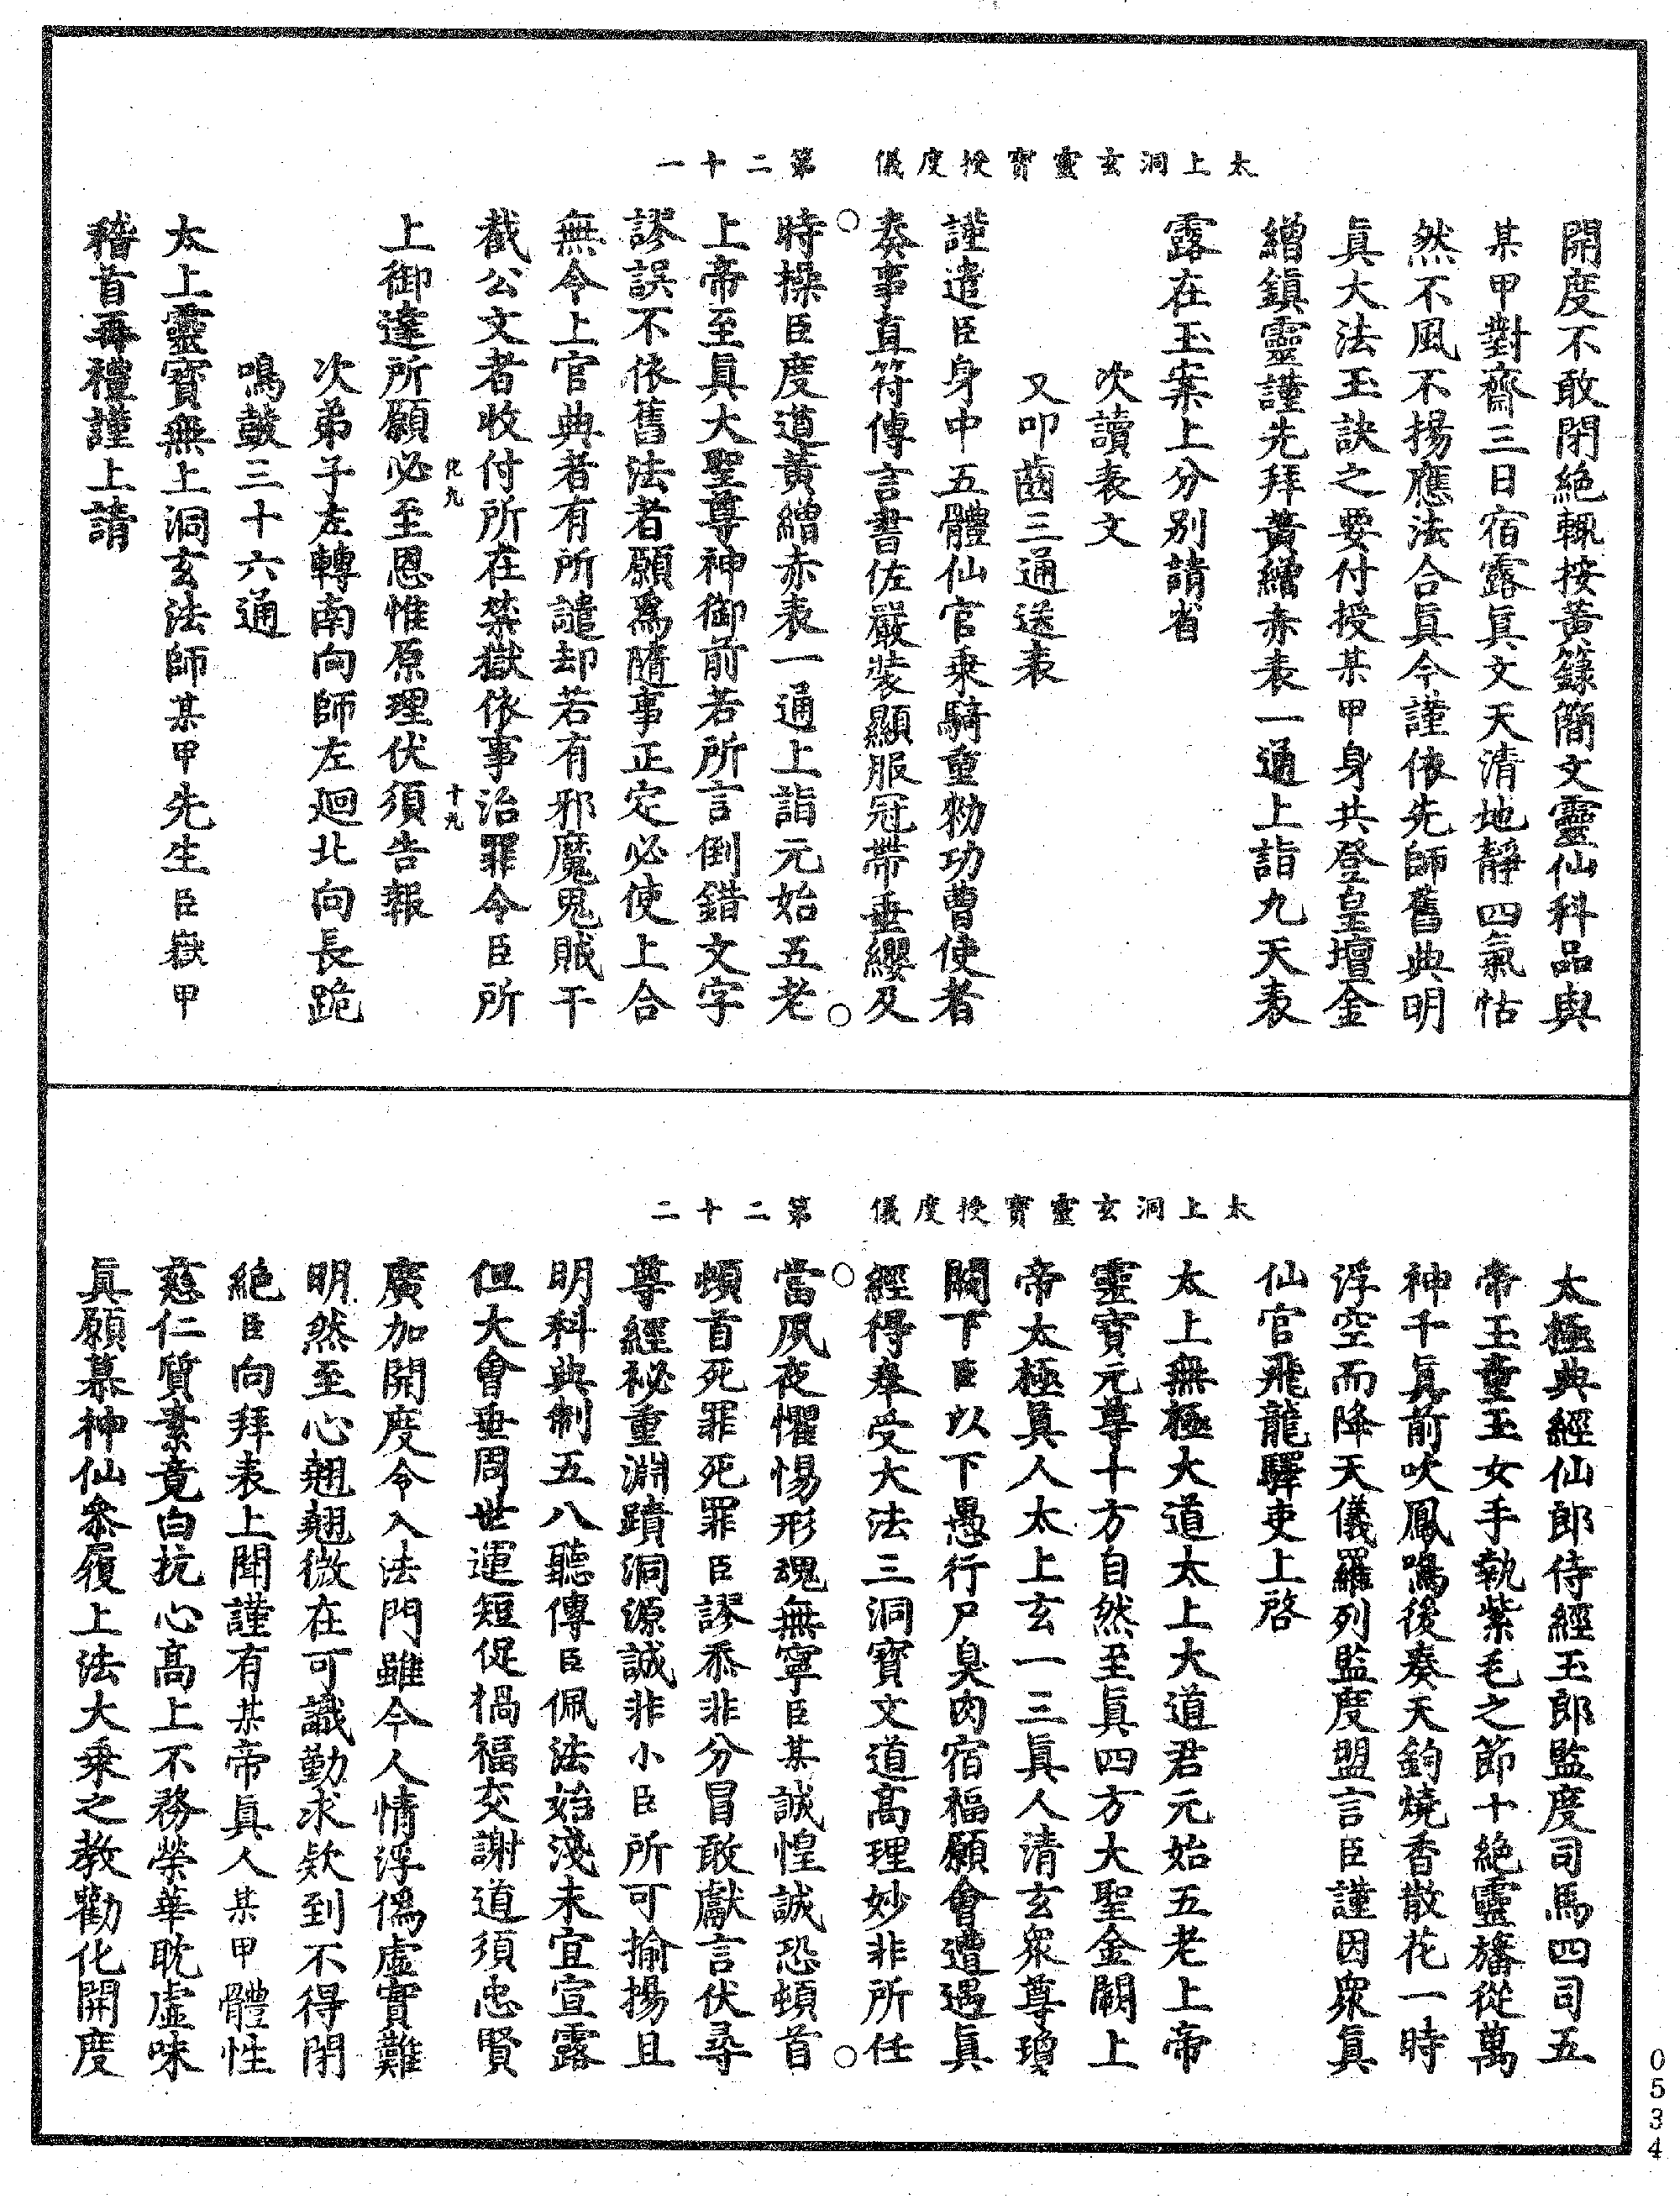 太上洞玄靈寶授度儀　第二十一
開度不敢閉絕輒按黃籙簡文靈仙科品與
某甲對齋三日宿露真文天清地靜四氣恬
然不風不揚應法合眞今謹依先師舊典明
眞大法玉訣之要付授某甲身共登皇壇金
繒鎮靈謹先拜黃繒赤表一通上詣九天表
露在玉案上分別請省
次讀表文
又叩齒三通送表
謹遣臣身中五體仙官乘騎重勑功曹使者
奏事直符傳言書佐嚴裝顯服冠帶垂纓及
時操臣度道黃繒赤表一通上詣元始五老
上帝至眞大聖尊神御前若所言倒錯文字
謬誤不依舊法者願爲隨事正定必使上合
無令上官典者有所譴却若有邪魔鬼賊干
截公文者收付所在禁獄依事治罪令臣所
化九　十九
上御達所願必至恩惟原理伏須告報
次弟子左轉南向師左廻北向長跪
鳴鼓三十六通
太上靈寶無上洞玄法師某甲先生臣嶽甲
稽首再禮謹上請
太上洞玄靈寶授度儀　第二十二
太極典經仙郎侍經玉郎監度司馬四司五
帝玉童玉女手執紫毛之節十絕靈旛從萬
神千眞前吹鳳鳴後奏天鈞燒香散花一時
浮空而降天儀羅列監度盟言臣謹因衆眞
仙官飛龍驛吏上啓
太上無極大道太上大道君元始五老上帝
靈寶元尊十方自然至眞四方大聖金闕上
帝太極眞人太上玄一三眞人清玄衆尊瓊
闕下臣以下愚行尸臭肉宿福願會遭遇眞
經得奉受大法三洞寶文道高理妙非所任
當夙夜懼惕形魂無寧臣某誠惶誠恐頓首
頓首死罪死罪臣謬忝非分冒敢獻言伏尋
尊經祕重淵賾洞源誠非小臣所可揄揚且
明科典制五八聽傳臣佩法始淺未宜宣露
但大會垂周世運短促禍福交謝道須忠賢
廣加開度令入法門雖今人情浮僞虛實難
明然至心翹翹微在可識勤求欵到不得閉
絕臣向拜表上聞謹有某帝眞人某甲體性
慈仁質素竟白抗心高上不務榮華耽虛味
眞願慕神仙叅履上法大乘之教勸化開度
0534